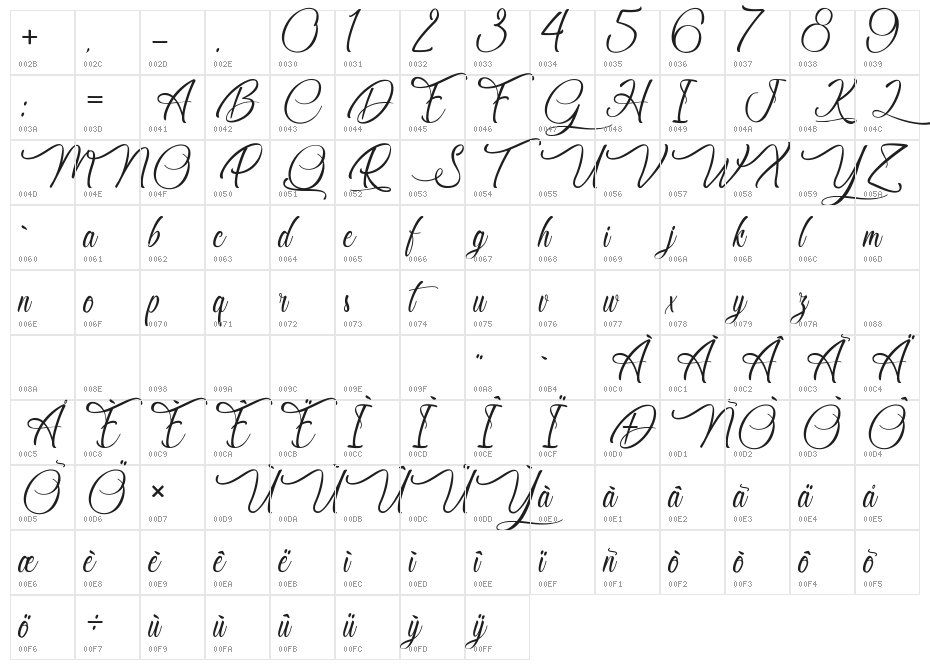 + , – . 0 1 2 3 4 5 6 7 8 9
002B 002C 002D 002E 0030 0031 0032 0033 0034 0035 0036 0037 0038 0039
: = A B C D E F G H I J K L
003A 003D 0041 0042 0043 0044 0045 0046 0047 0048 0049 004A 004B 004C
M N O P Q R S T U V W X Y Z
004D 004E 004F 0050 0051 0052 0053 0054 0055 0056 0057 0058 0059 005A
` a b c d e f g h i j k l m
0060 0061 0062 0063 0064 0065 0066 0067 0068 0069 006A 006B 006C 006D
n o p q r s t u v w x y z
006E 006F 0070 0071 0072 0073 0074 0075 0076 0077 0078 0079 007A 0088
¨ ` À À Â Ã Ä
008A 008E 0098 009A 009C 009E 009F 00A8 00B4 00C0 00C1 00C2 00C3 00C4
Å È È Ê Ë Ì Ì Î Ï Ð Ñ Ò Ò Ô
00C5 00C8 00C9 00CA 00CB 00CC 00CD 00CE 00CF 00D0 00D1 00D2 00D3 00D4
Õ Ö × Ù Ù Û Ü Ỳ à à â ã ä å
00D5 00D6 00D7 00D9 00DA 00DB 00DC 00DD 00E0 00E1 00E2 00E3 00E4 00E5
æ è è ê ë ì ì î ï ñ ò ò ô õ
00E6 00E8 00E9 00EA 00EB 00EC 00ED 00EE 00EF 00F1 00F2 00F3 00F4 00F5
ö ÷ ù ù û ü ỳ ÿ
00F6 00F7 00F9 00FA 00FB 00FC 00FD 00FF